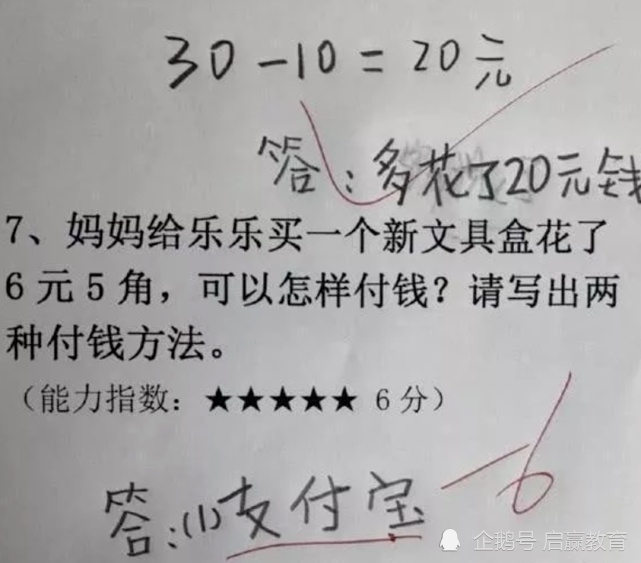 30-10=20元
答:多花了20元钱
7、妈妈给乐乐买一个新文具盒花了
6元5角，可以怎样付钱？请写出两
种付钱方法。
（能力指数：★★★★★ 6分）
-6
答:(1)支付宝
企鹅号 启赢教育